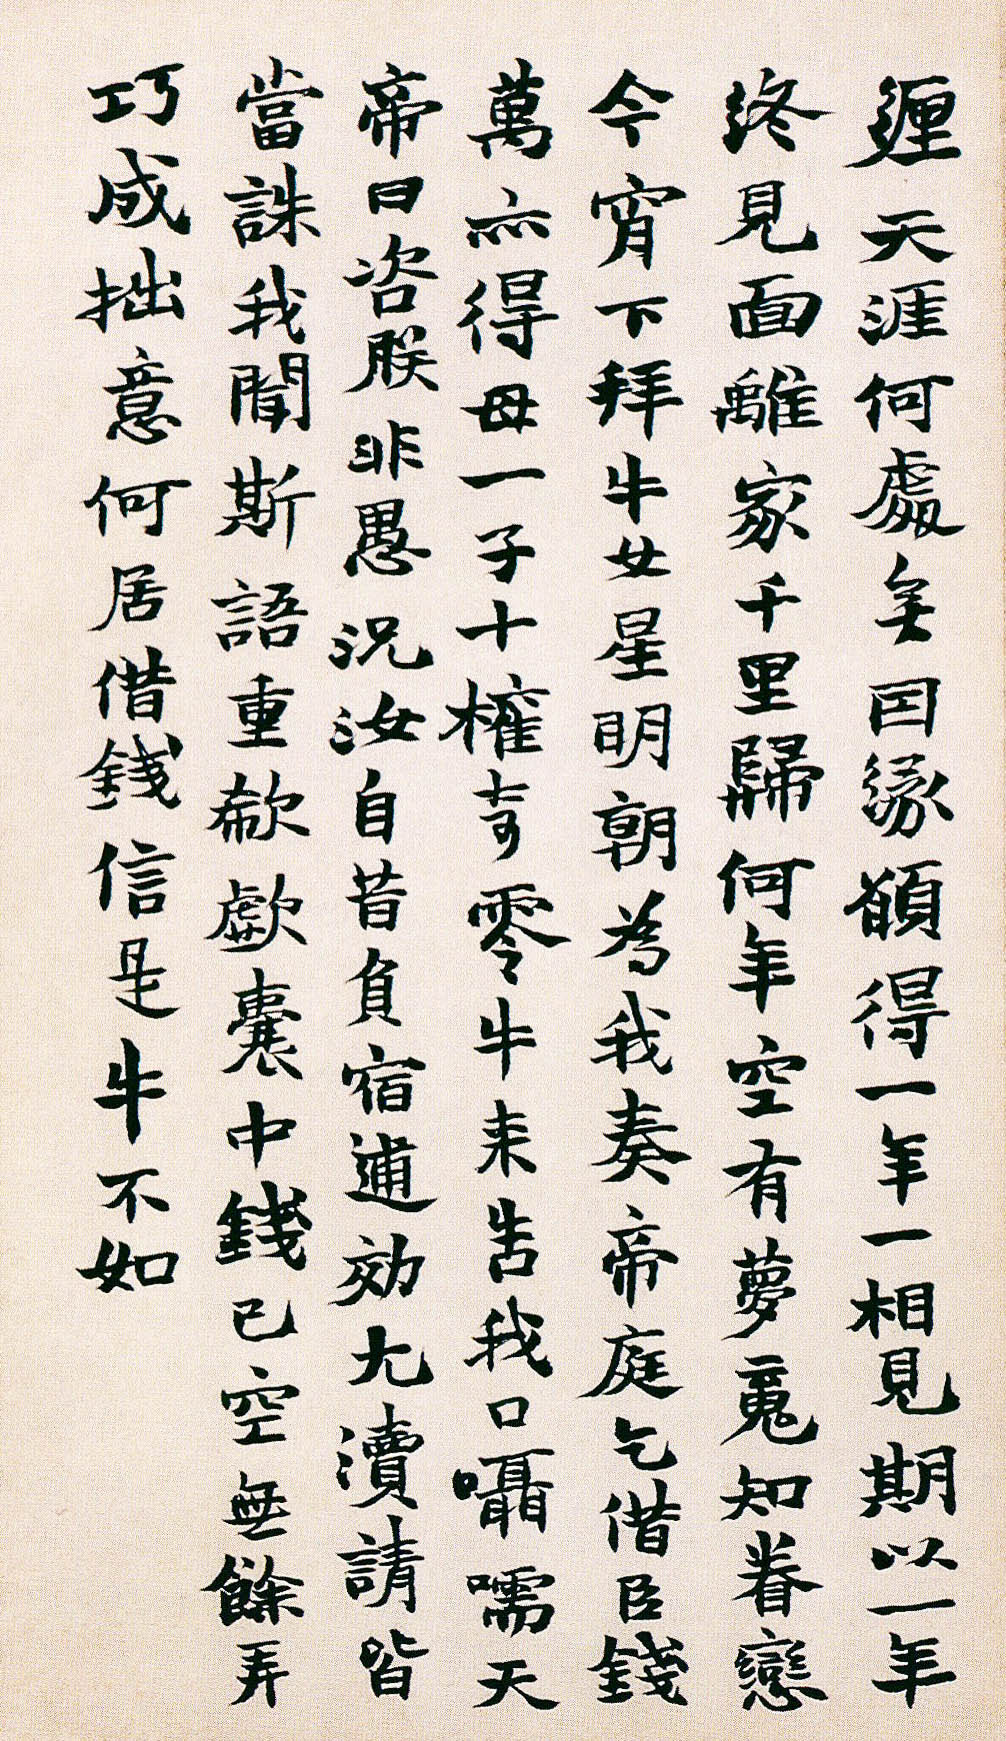 纏天涯何處无因緣願得一年一相見期以一年
終見面離家千里歸何年空有夢魂知眷戀
今宵下拜牛女星明朝為我奏帝庭乞借臣錢
萬亦得母一子十權奇零牛來告我口囁嚅天
帝曰咨朕非愚況汝自昔負宿逋効尤瀆請皆
當誅我聞斯語重欷歔囊中錢已空無餘弄
巧成拙意何居借錢信是牛不如